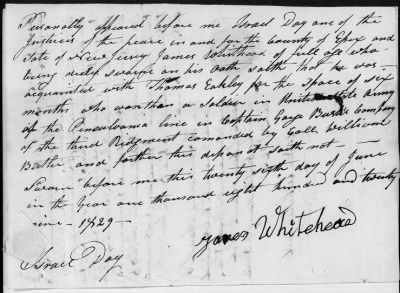 Personally appeared before me Israel Day one of the
Justices of the peace in and for the County of Essex and
State of New Jersey James Whithead of full age who
being duely sworne on his oath saith that he was
acquainted with Thomas Eakley for the space of six
months who was than a Soldier in United State Army
of the Pensulvania line in Captain Company
of the third Ridgement comanded by Coll. William
Butler and further this deponat saith not—
Sworn before me this twenty sixth day of June
in the year one thousand eight hundred and twenty
nine — 1829 —
James Whitehead
Israel Day